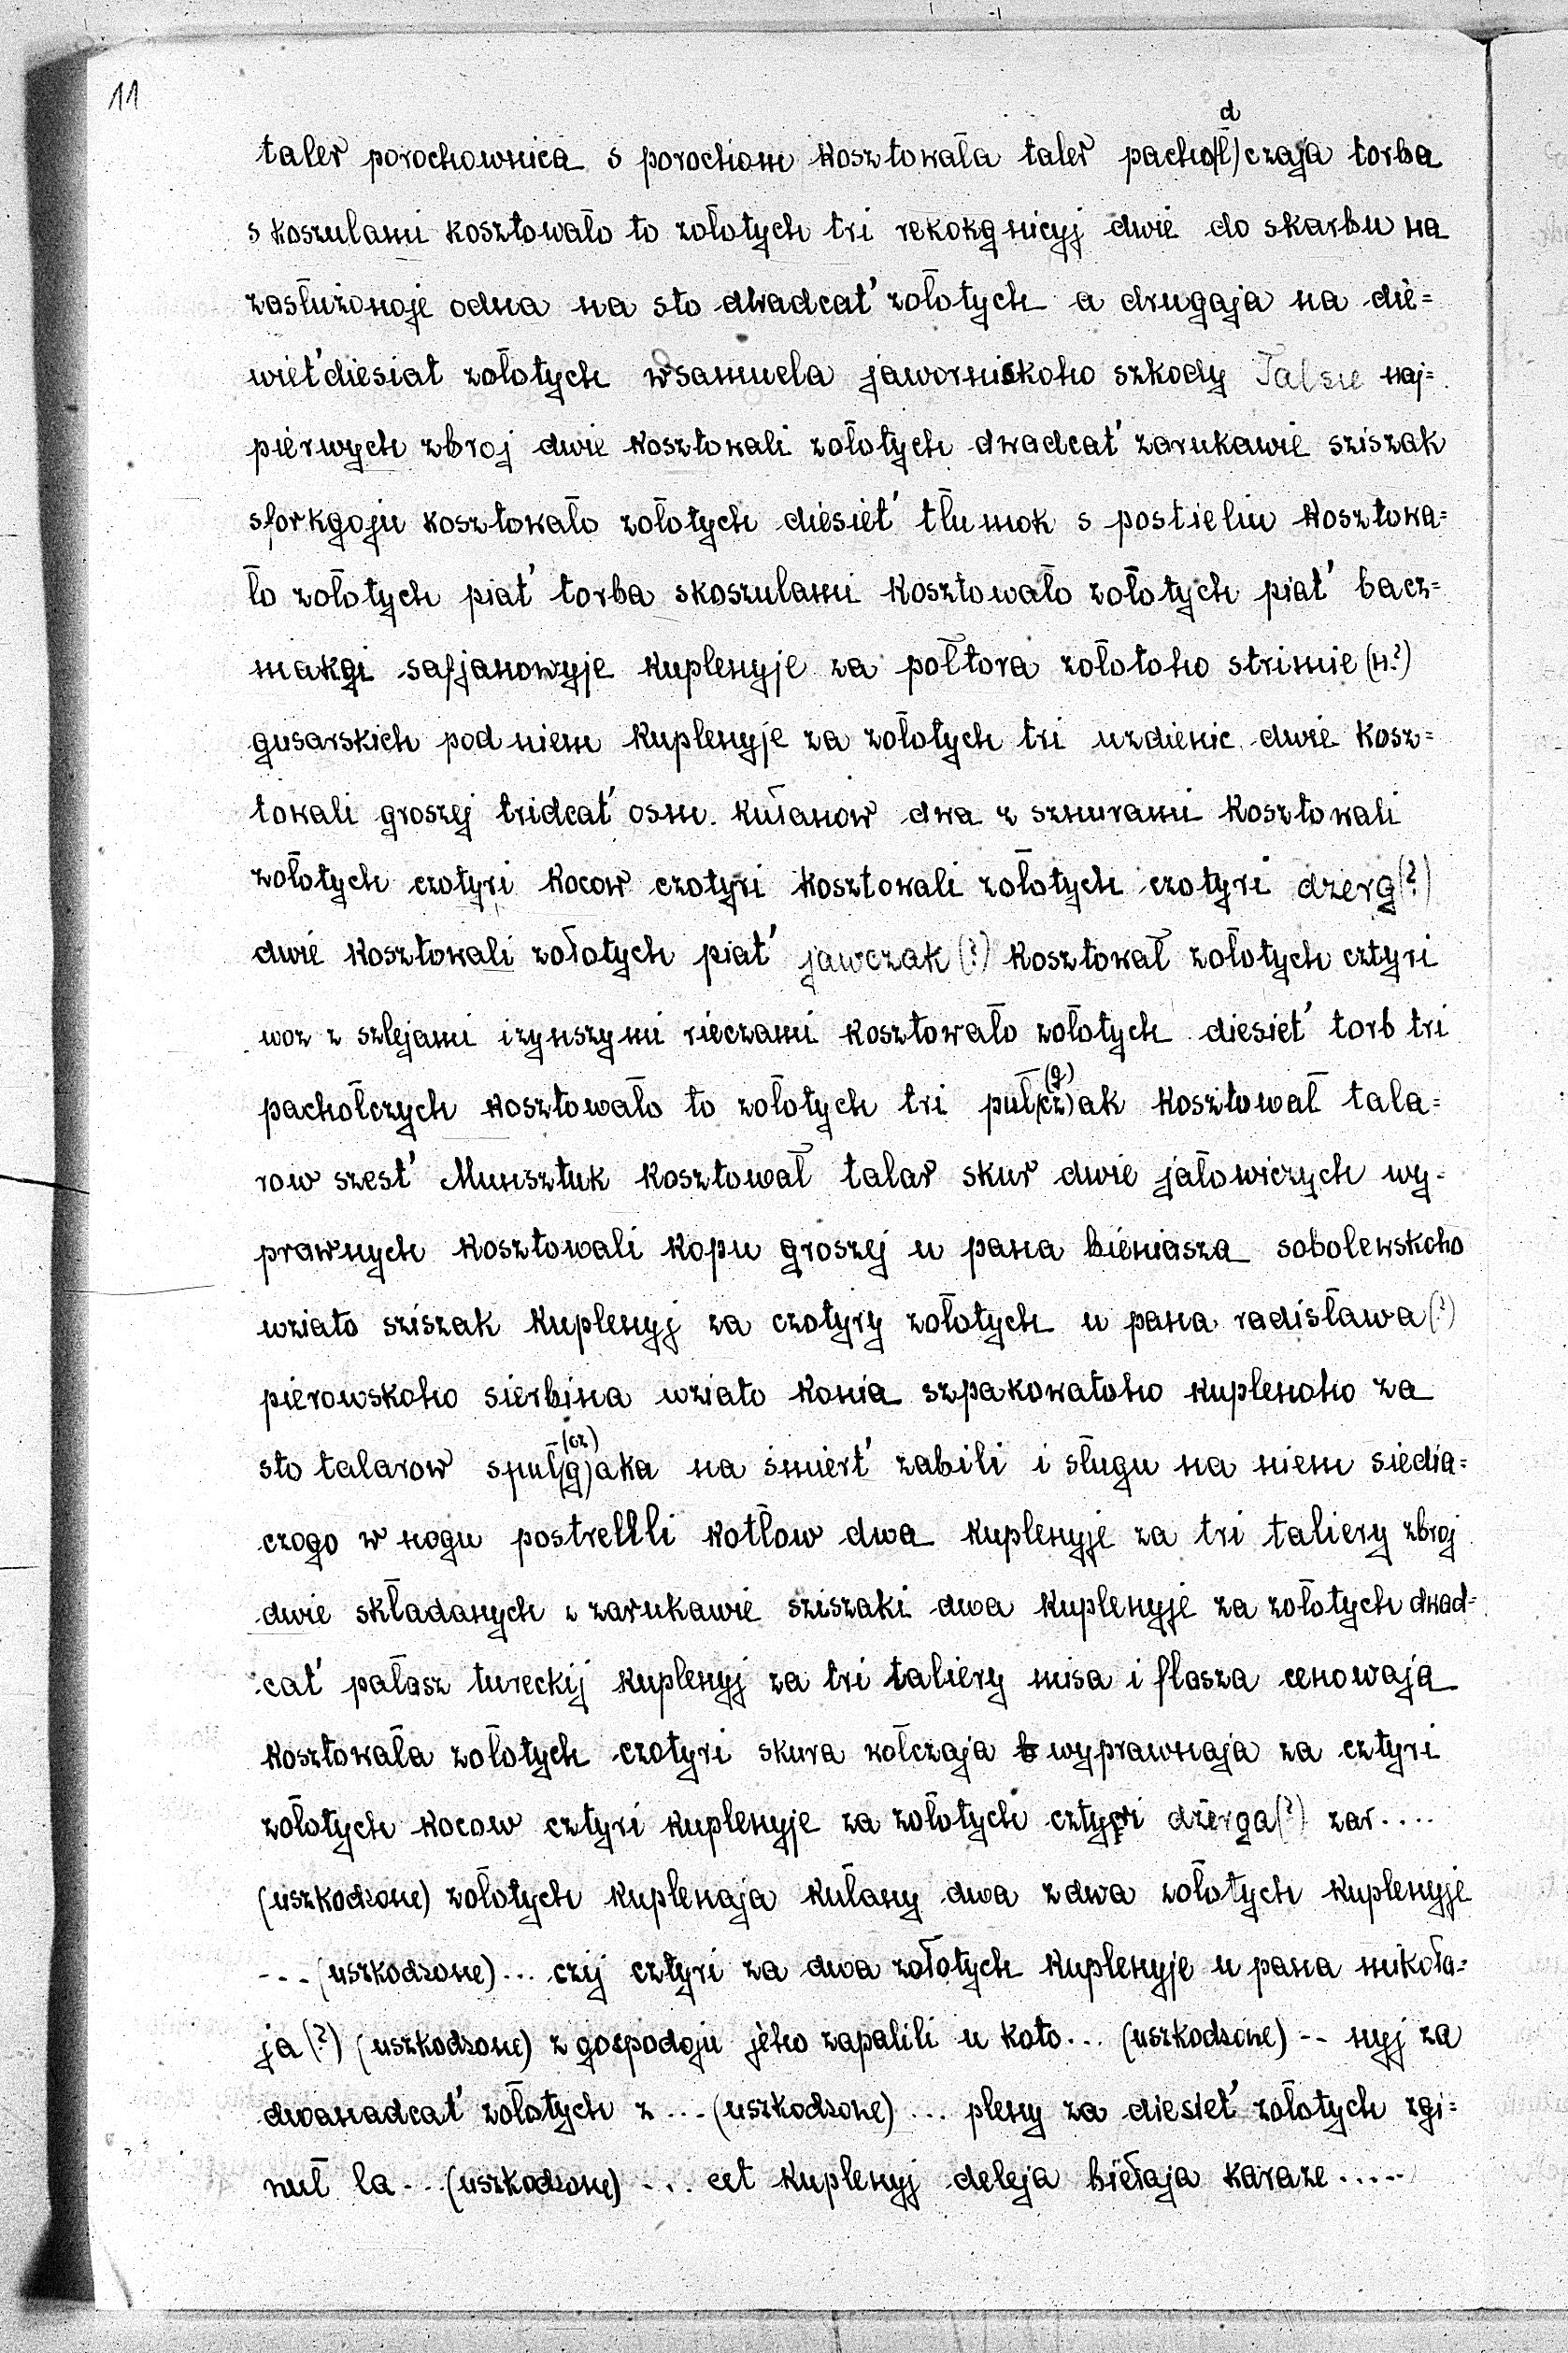 11
d
taler porochownica s porochom kosztowała taler pacho(ł)czaja torba
s koszulami kosztowało to zołotych tri rekokgnicyj dwie do skarbu na
zasłużonoje odna na sto dwadcat' zołotych a drugaja na die=
wiet'diesiat zołotych wsamuela jawornickoho szkody Talsie naj=
pierwych zbroj dwie kosztowali zołotych dwadcat' zarukawie sziszak
sforkgoju kosztowało zołotych diesiet' tłumok s postieliu kosztowa=
ło zołotych piat' torba skoszulami kosztowało zołotych piat' bacz=
makgi safjanowyje kuplenyje za połtora zołotoho strimie (n?)
gusarskich pod niem kuplenyje za zołotych tri uzdienic dwie kosz=
towali groszej tridcat' osm. kułanow dwa z sznurami kosztowali
zołotych czotyri kocow czotyri kosztowali zołotych czotyri dzerg(?)
dwie kosztowali zołotych piat' jawczak (?) kosztował zołotych cztyri
woz z szlejami izynszymi rieczami kosztowało zołotych diesiet' torb tri
pachołczych kosztowało to zołotych tri puł(cz)ak kosztował tala=
(g)
row szest' Munsztuk kosztował talar skur dwie jałowiczych wy=
prawnych kosztowali kopu groszej u pana bieniasza sobolewskoho
wziato sziszak kuplenyj za czotyry zołotych u pana radisława (?)
pierowskoho sierbina wziato konia szpakowatoho kuplenoho za
(cz)
sto talarow spuł(g)aka na śmiert' zabili i sługu na niem siedia=
czogo w nogu postrelili kotłow dwa kuplenyje za tri taliery zbroj
dwie składanych z zarukawie sziszaki dwa kuplenyje za zołotych dwad=
cat' pałasz tureckij kuplenyj za tri taliery misa i flasza cenowaja
kosztowała zołotych czotyri skura wołczaja wyprawnaja za cztyri
zołotych kocow cztyri kuplenyje za zołotych cztyri dżerga (?) zar....
(uszkodzone) zołotych kuplenaja kułany dwa zdwa zołotych kuplenyje
--- (uszkodzone)... czij cztyri za dwa zołotych kuplenyje u pana mikoła=
ja (?) (uszkodzone) z gospodoju jeho zapalili u koło... (uszkodzone) -- nyj za
dwanadcat' zołotych z ... (uszkodzone) ... pleny za diesiet' zołotych zgi=
nuł la ... (uszkodzone) ... cet kuplenyj deleja biełaja karaze .....